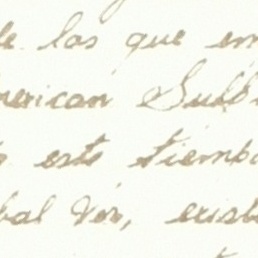 de las que em
merican Sulb
este tiemb
bal Ver, exist